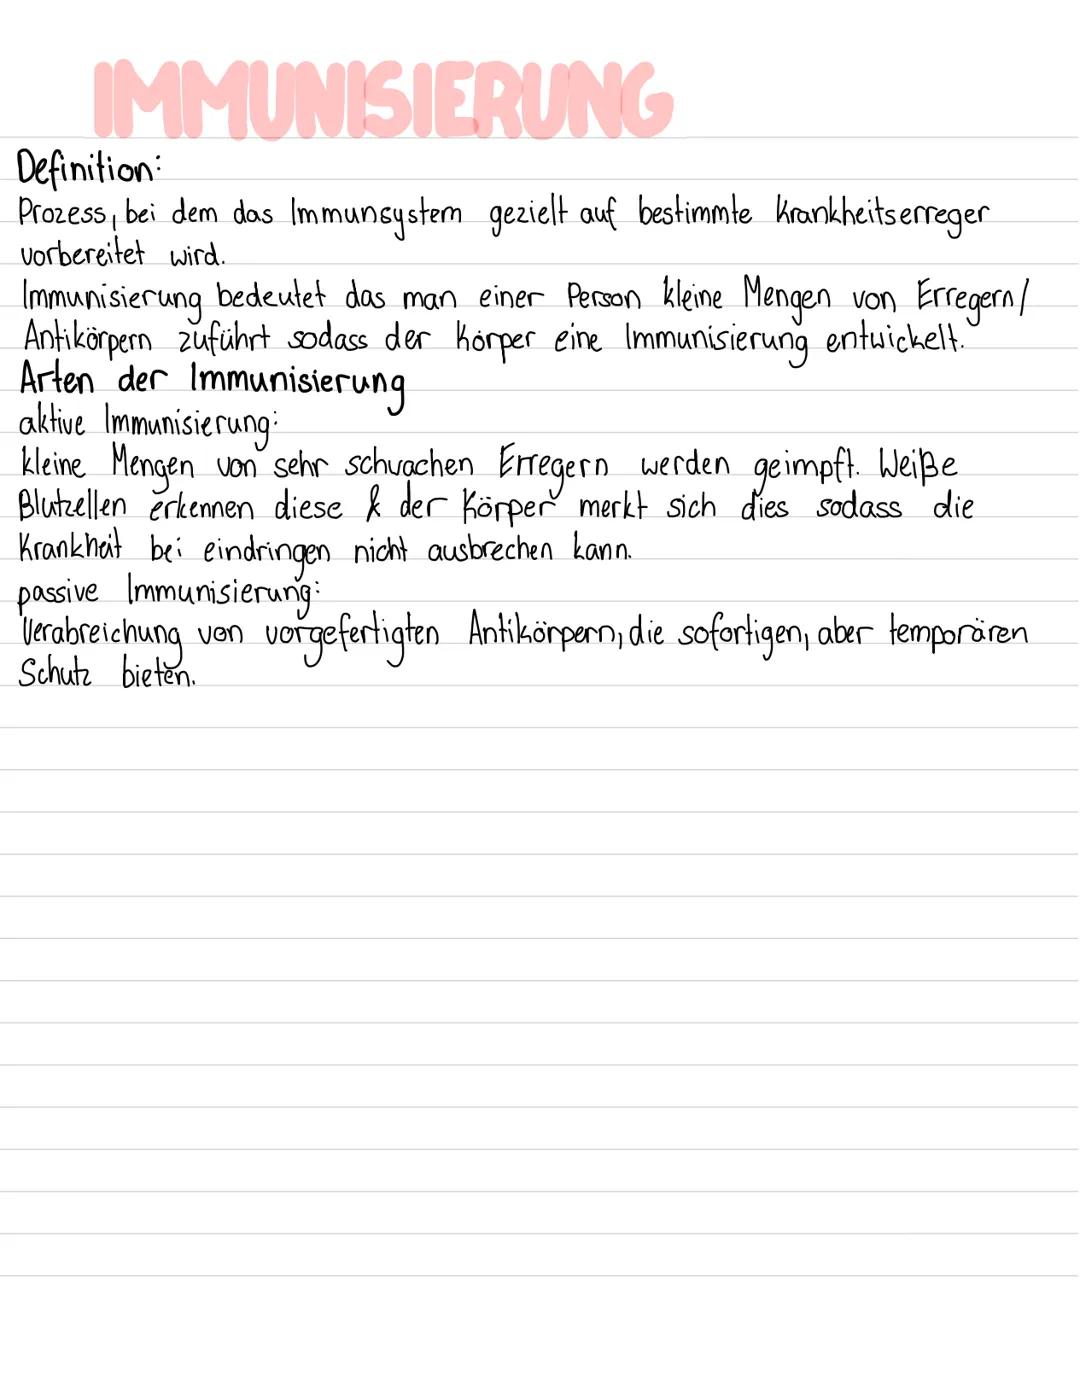 IMMUNISIERUNG
Definition:
Prozess, bei dem das Immunsystem gezielt auf bestimmte Krankheitserreger
vorbereitet wird.
Immunisierung bedeutet das man einer Person kleine Mengen von Erregern/
Antikörpern zuführt sodass der Körper eine Immunisierung entwickelt.
Arten der Immunisierung
aktive Immunisierung:
kleine Mengen von sehr schwachen Erregern werden geimpft. Weiße
Blutzellen erkennen diese & der Körper merkt sich dies sodass die
Krankheit bei eindringen nicht ausbrechen kann.
passive Immunisierung:
Verabreichung von vorgefertigten Antikörpern, die sofortigen, aber temporären
Schutz bieten.